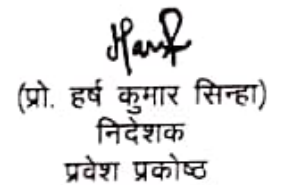 (प्रो. हर्ष कुमार सिन्हा)
निदेशक
प्रवेश प्रकोष्ठ